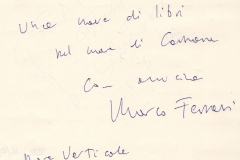 Una nave di libri
nel mare di
Co_ amicizia
Marco Ferrari
Mare Verticale